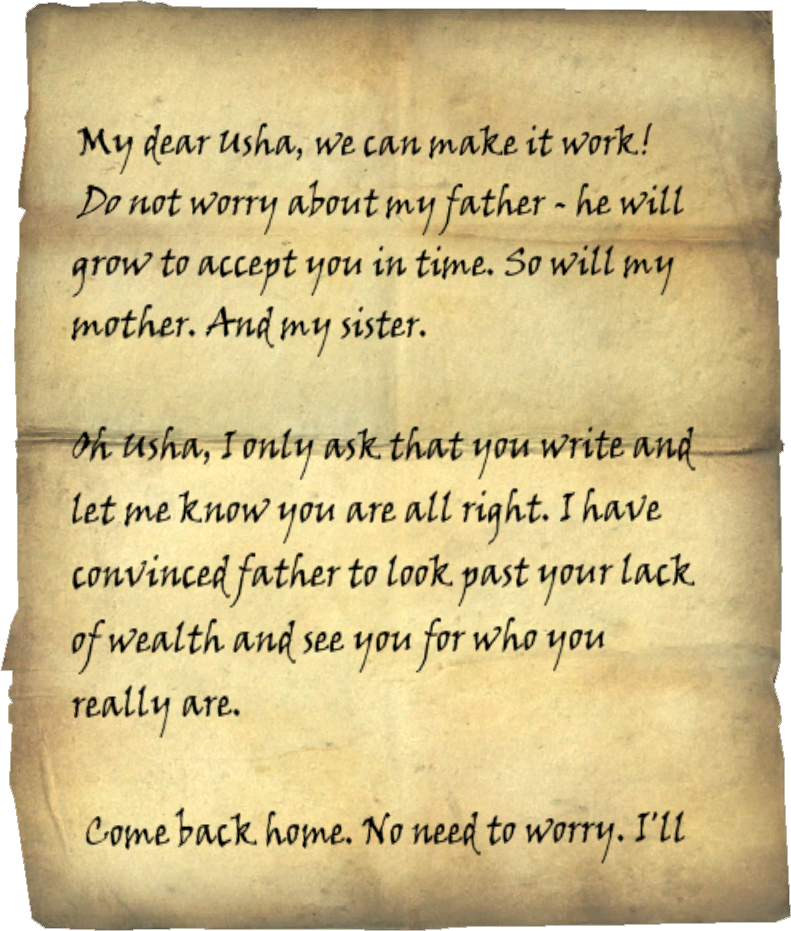 My dear Usha, we can make it work!
Do not worry about my father - he will
grow to accept you in time. So will my
mother. And my sister.
Oh Usha, I only ask that you write and
let me know you are all right. I have
convinced father to look past your lack
of wealth and see you for who you
really are.
Come back home. No need to worry. I'll